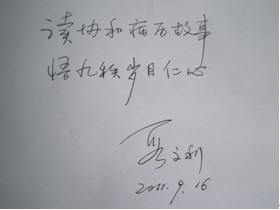 读协和病历故事
悟九秩岁月仁心
文利
2011.9.16